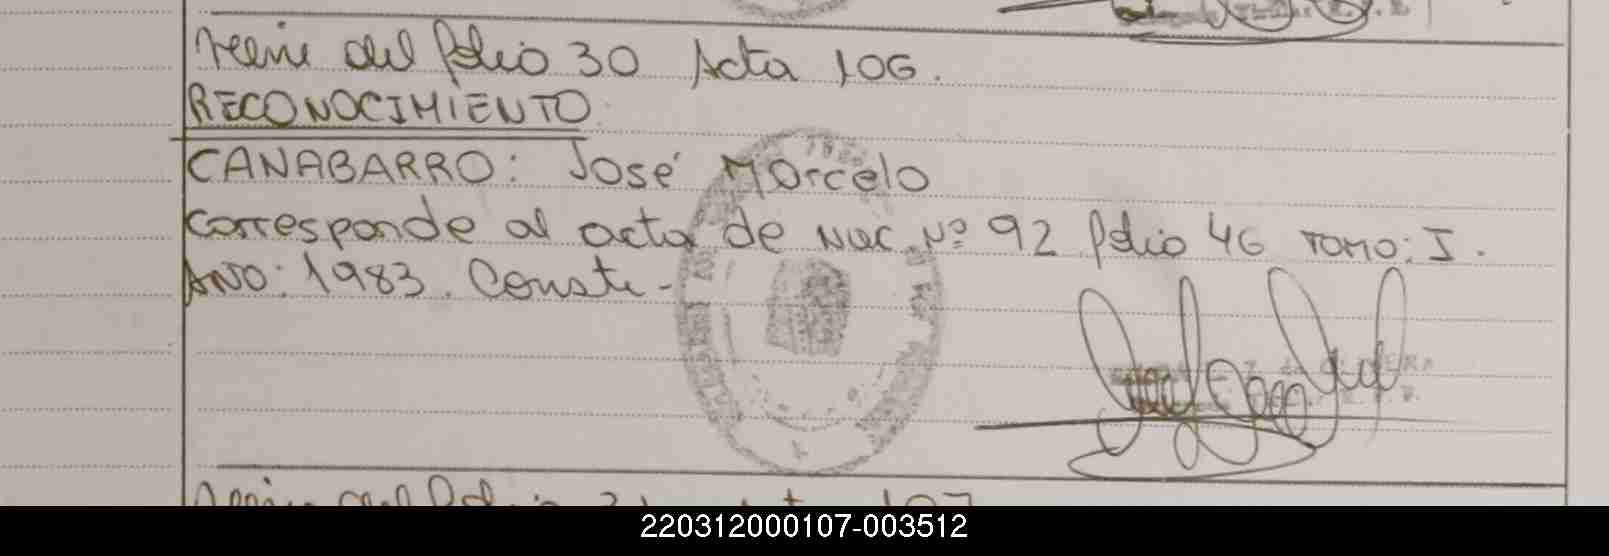 Viene del folio 30 Acta 106.
RECONOCIMIENTO.
CANABARRO: José Marcelo
Corresponde al acta de Nac. Nº 92 folio 46 TOMO: I.
AÑO: 1983. Conste-
220312000107-003512